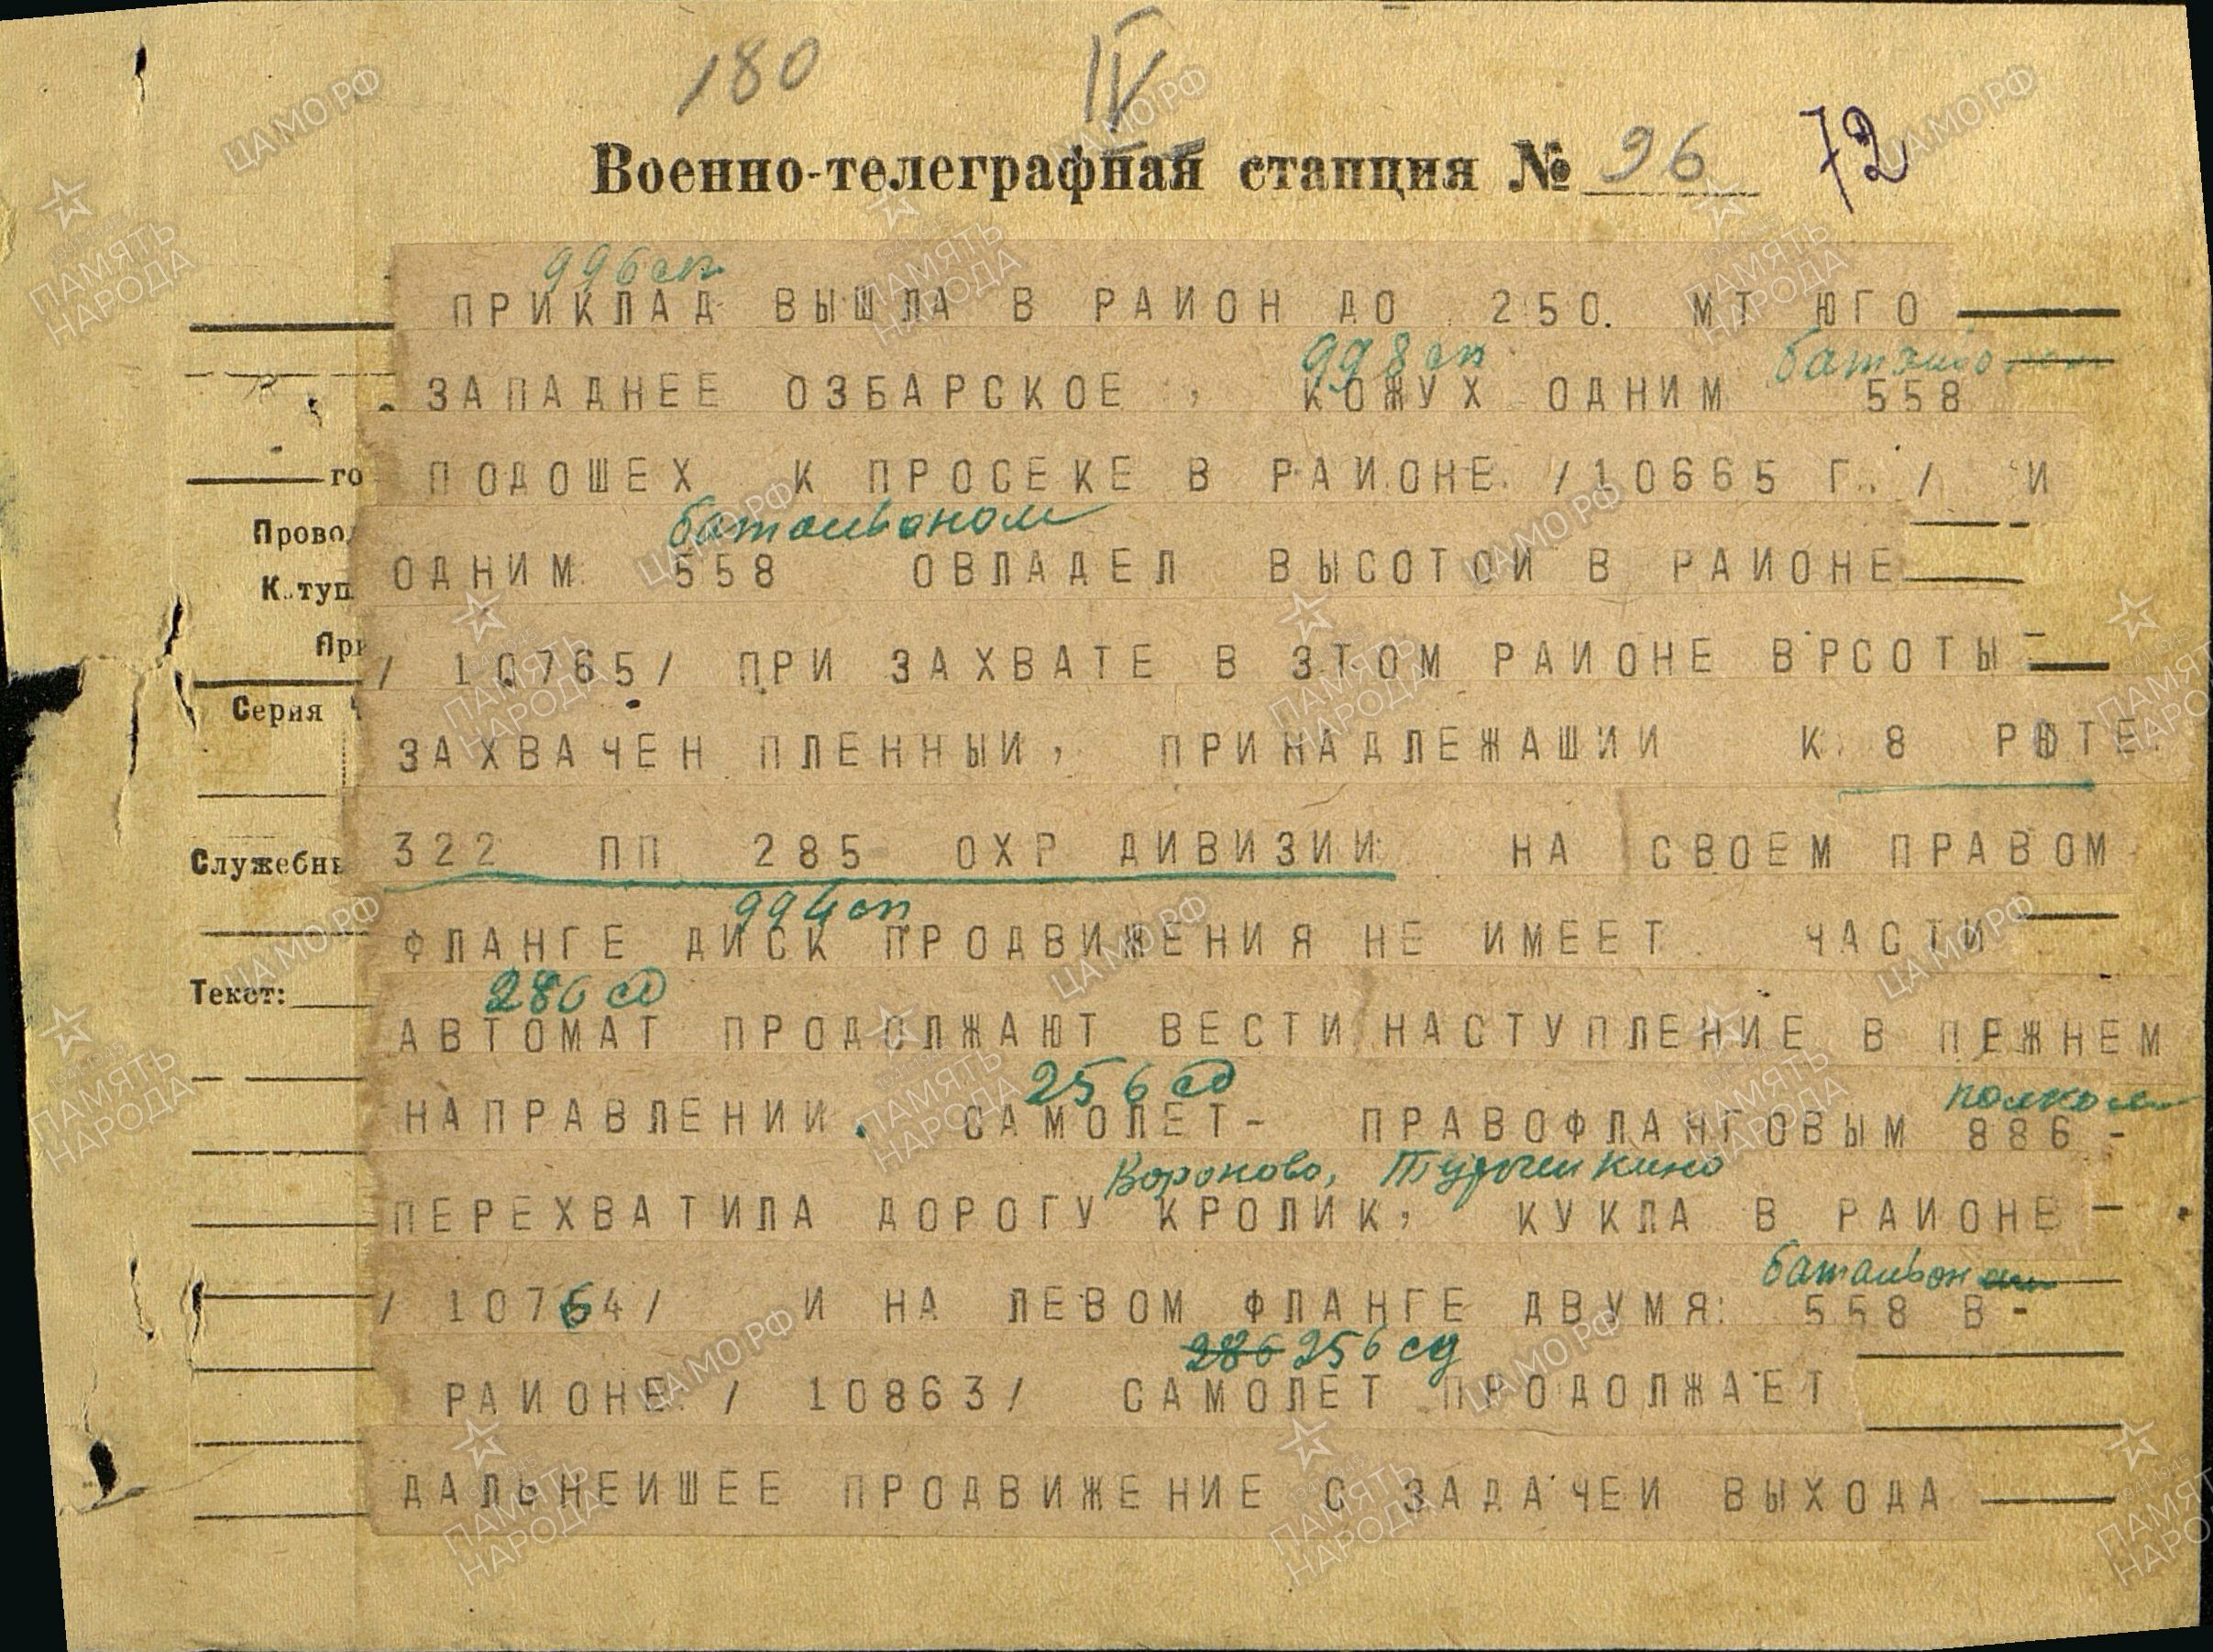 180 IV
Военно-телеграфная станция № 96 72
996 сп
ПРИКЛАД ВЫШЛА В РАИОН ДО 250. МТ ЮГО
998 сп батальо
ЗАПАДНЕЕ ОЗБАРСКОЕ , КОЖУХ ОДНИМ 558
го ПОДОШЕХ К ПРОСЕКЕ В РАИОНЕ /10665 Г. / И
батальоном
Прово
ОДНИМ 558 ОВЛАДЕЛ ВЫСОТОИ В РАИОНЕ
К туп
При
/ 10765/ ПРИ ЗАХВАТЕ В ЗТОМ РАИОНЕ ВРСОТЫ
Серия
ЗАХВАЧЕН ПЛЕННЫИ, ПРИНАДЛЕЖАШИИ К 8 РЮТЕ
Служебн 322 ПП 285 ОХР ДИВИЗИИ НА СВОЕМ ПРАВОМ
994 сп
ФЛАНГЕ ДИСК ПРОДВИЖЕНИЯ НЕ ИМЕЕТ. ЧАСТИ
Текст: 286 сд
АВТОМАТ ПРОДОЛЖАЮТ ВЕСТИ НАСТУПЛЕНИЕ В ПЕЖНЕМ
256 сд полком
НАПРАВЛЕНИИ. САМОЛЕТ- ПРАВОФЛАНГОВЫМ 886 -
Вороново, Турышкино
ПЕРЕХВАТИЛА ДОРОГУ КРОЛИК, КУКЛА В РАИОНЕ -
батальон
/ 10764/ И НА ЛЕВОМ ФЛАНГЕ ДВУМЯ: 558 В -
286 256 сд
РАИОНЕ / 10863/ САМОЛЕТ ПРОДОЛЖАЕТ
ДАЛЬНЕИШЕЕ ПРОДВИЖЕНИЕ С ЗАДАЧЕИ ВЫХОДА
ПАМЯТЬ НАРОДА
ЦАМО.РФ